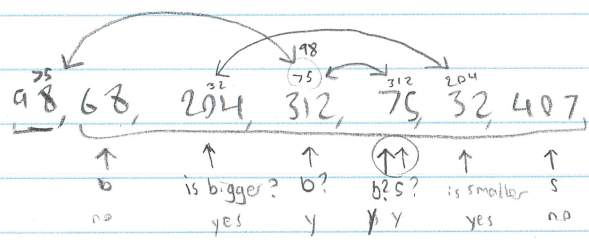 98
75 32 75 312 204
98, 68, 204, 312, 75, 32, 407
b is bigger? b? b? s? is smaller s
no yes y y yes no